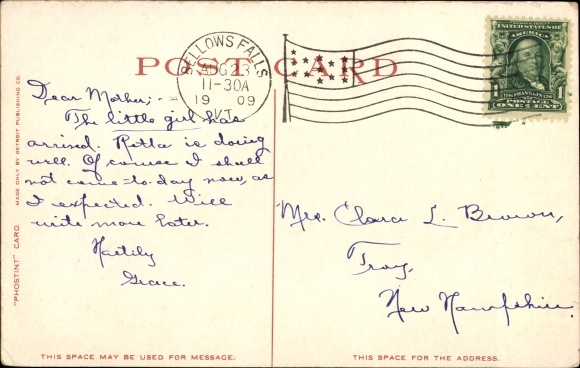 POST CARD
BELLOWS FALLS
AUG 23
11-30A
19 09
VT.
UNITED STATES OF
AMERICA
FRANKLIN
POSTAGE
1 ONE CENT 1
Dear Mother:-
The little girl has
arrived. Retta is doing
well. Of course I shall
not come to-day now, as
I expected. Will
write more later.
Hastily
Grace.
Mrs. Clara L. Brown,
Troy,
New Hampshire.
"PHOSTINT" CARD
MADE ONLY BY DETROIT PUBLISHING CO.
THIS SPACE MAY BE USED FOR MESSAGE.
THIS SPACE FOR THE ADDRESS.